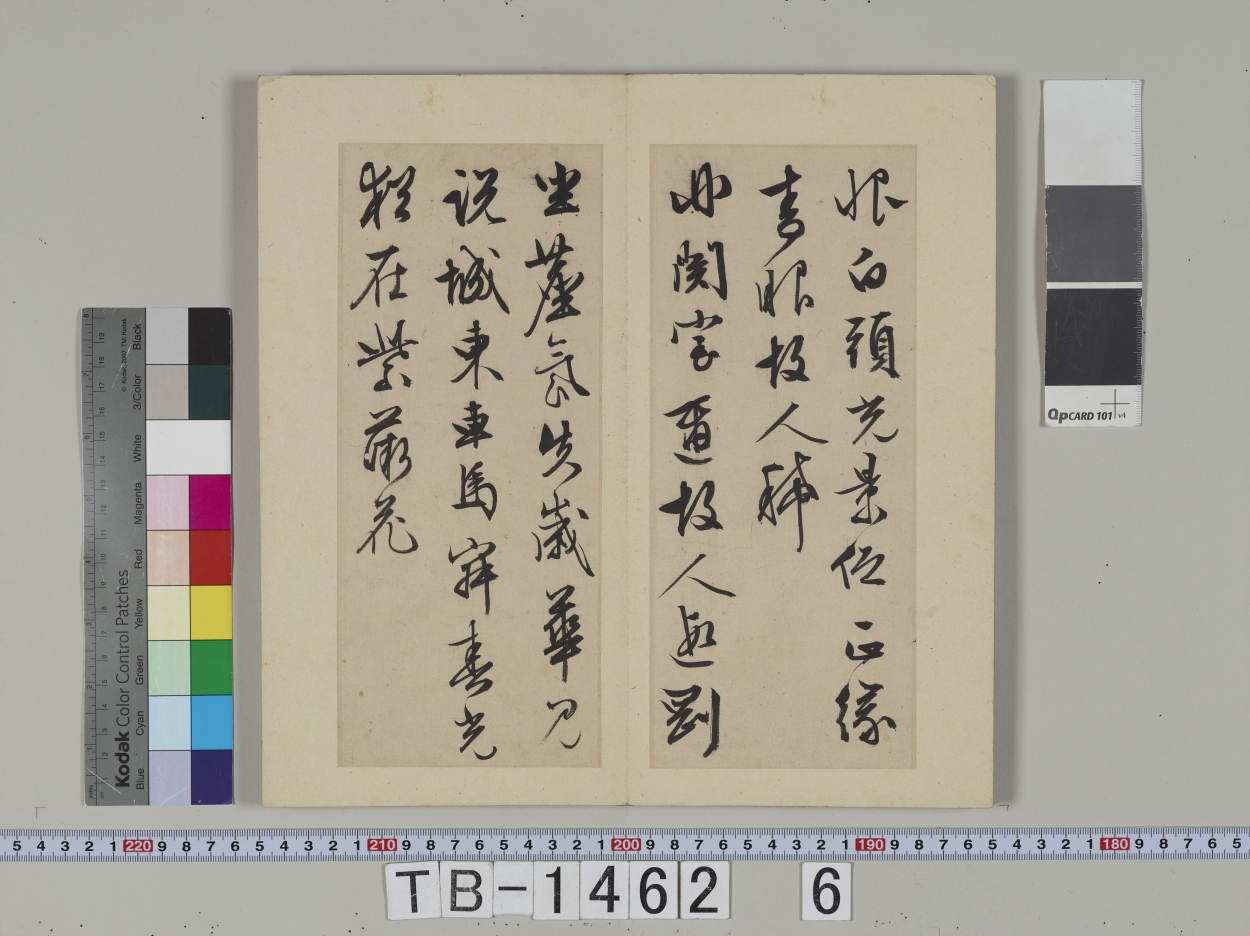 恨白頭光景促正緣
青眼故人稀
毋關室邇故人遐剛
坐塵氛失歲華見
說城東車馬寂春光
猶在紫薇花
Kodak Color Control Patches
© Kodak, 2007 TM: Kodak
Blue Cyan Green Yellow Red Magenta White 3/Color Black
QPCARD 101 v4
5 4 3 2 1 220 9 8 7 6 5 4 3 2 1 210 9 8 7 6 5 4 3 2 1 200 9 8 7 6 5 4 3 2 1 190 9 8 7 6 5 4 3 2 1 180 9 8 7 6 5
TB-1462 6